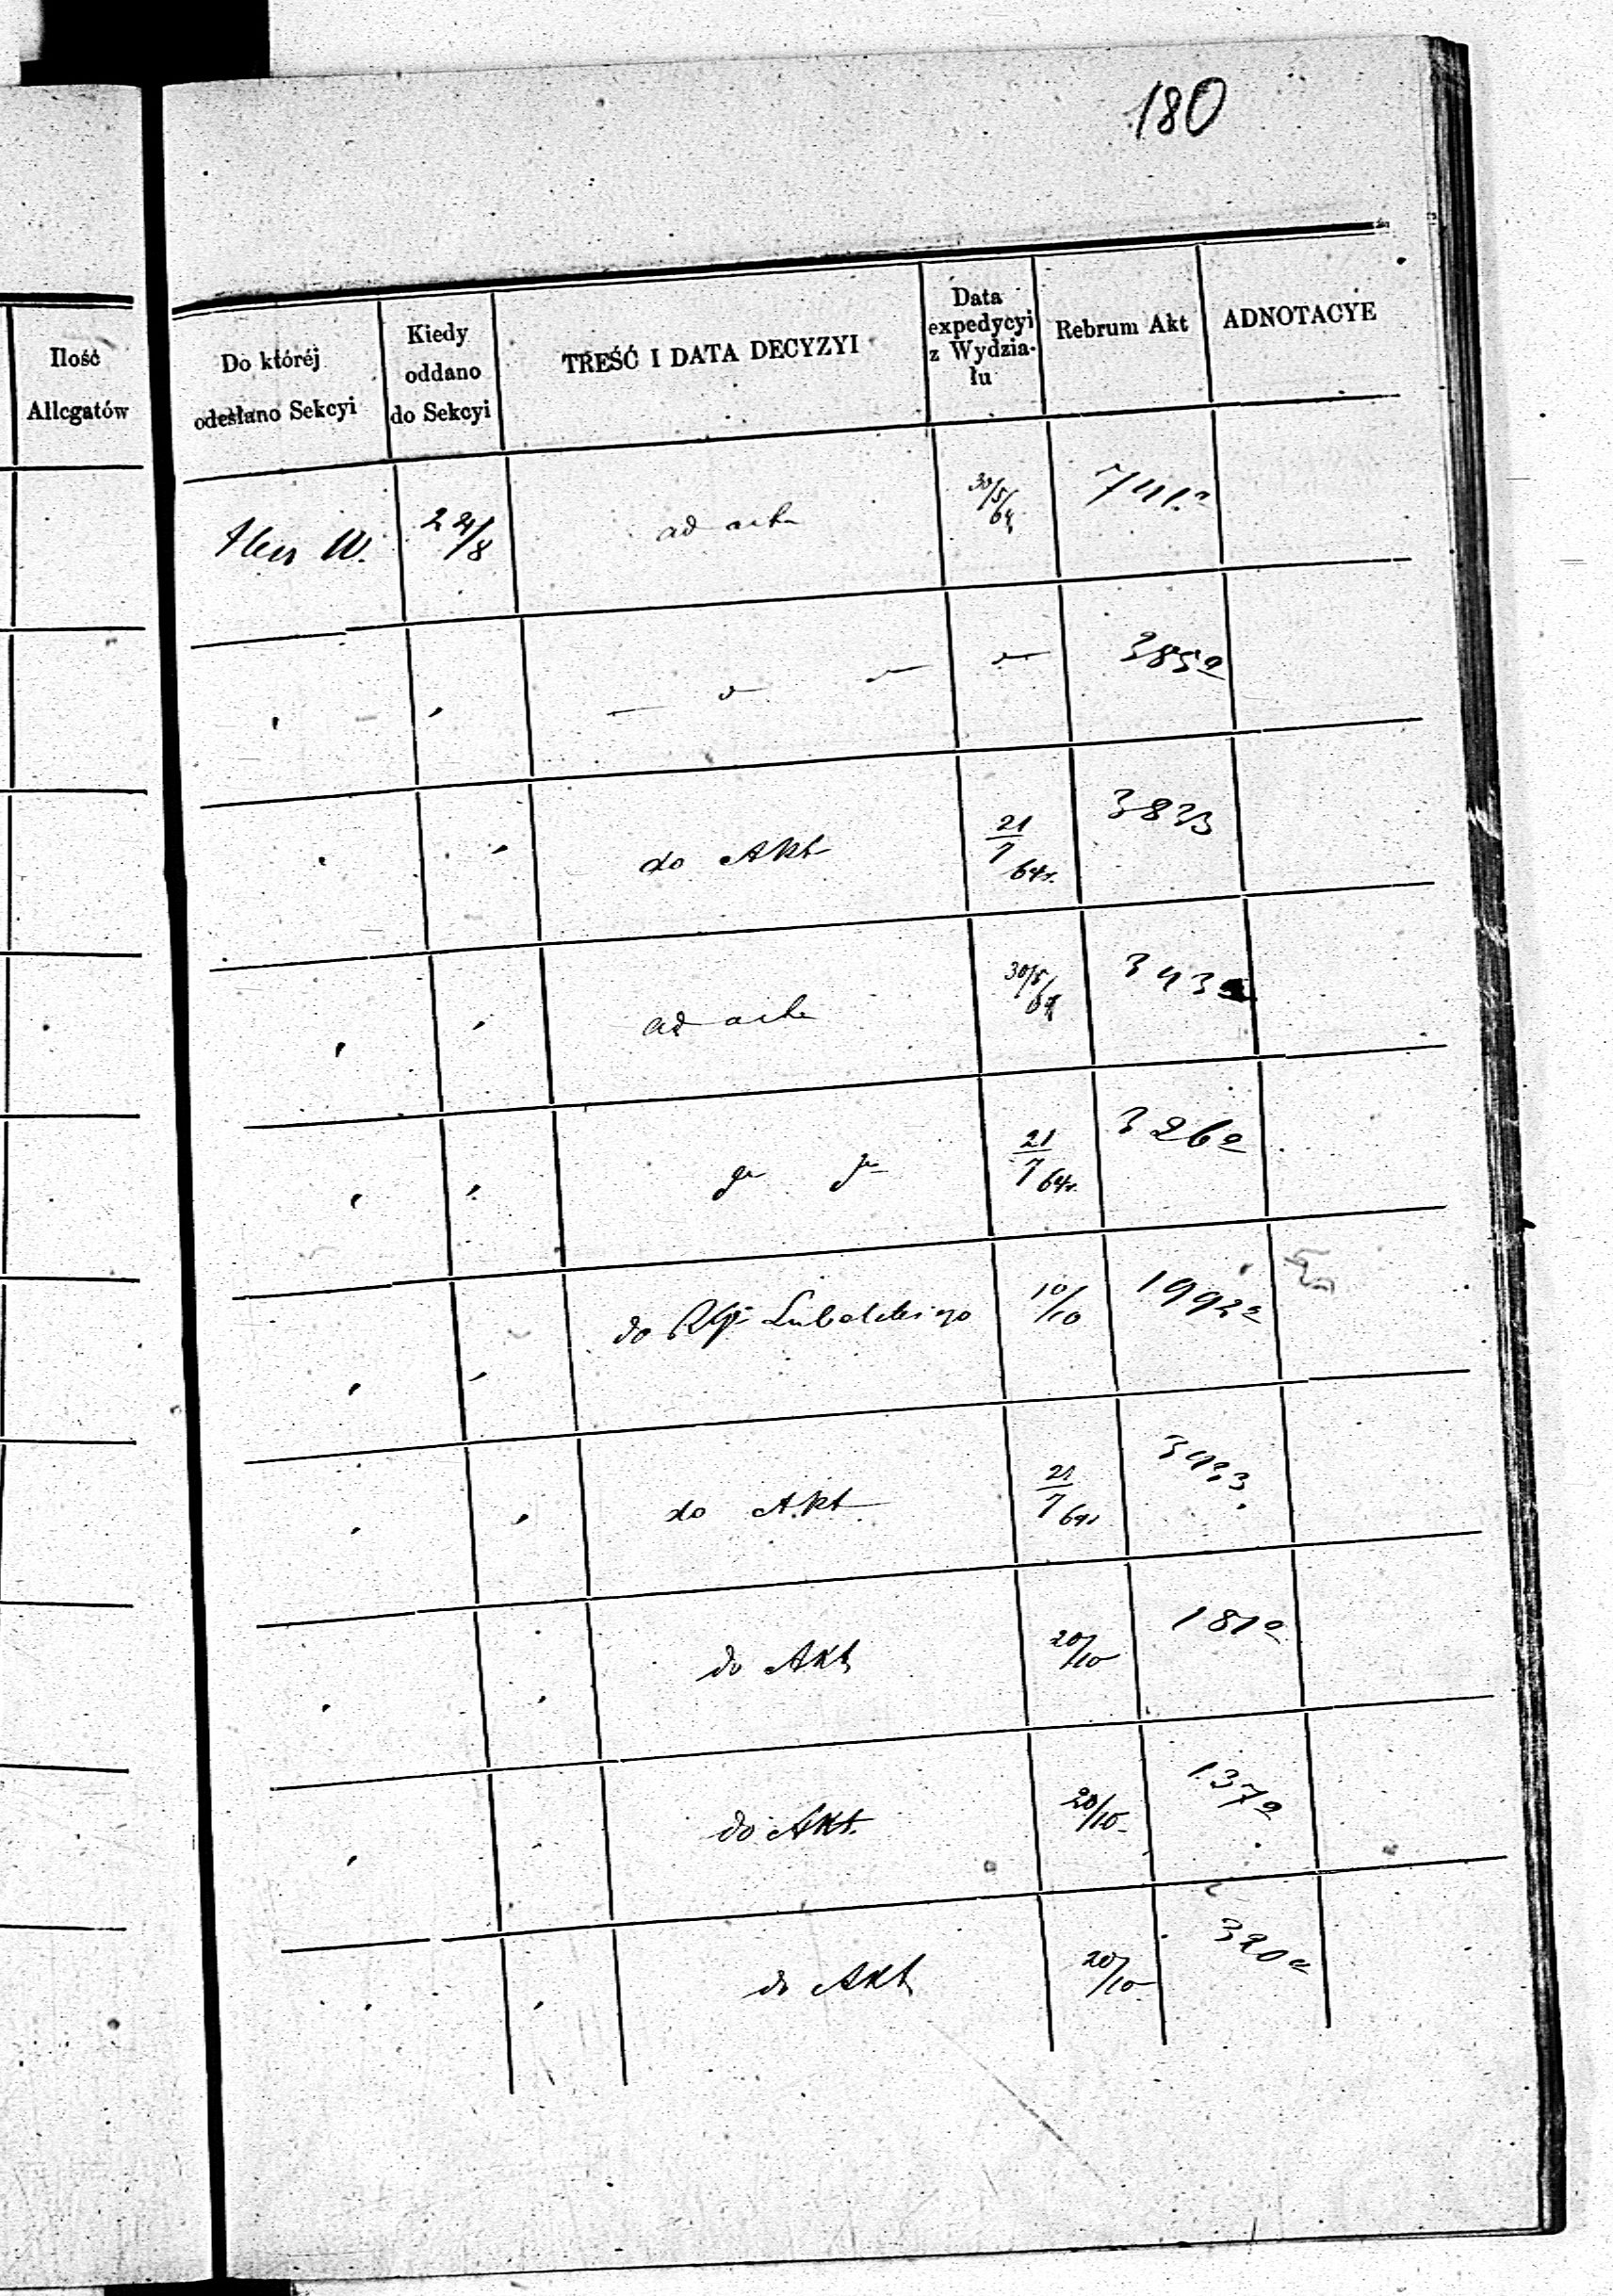 180
Ilość
Allegatów
Do któréj
odesłano Sekcyi
Kiedy
oddano
do Sekcyi
TREŚĆ I DATA DECYZYI
Data
expedycyi
z Wydzia-
łu
Rebrum Akt
ADNOTACYE
W.
ad acta
30/5/64
385a
do Akt
21/7 64r.
3833
ad acta
30/5/64
343
21/7 64r.
326a
do Lubelskiego
10/10
1992a
do Akt
21/7 64r
3433
do Akt
20/10
187a
do Akt.
20/10
137a
do Akt
20/10
320a